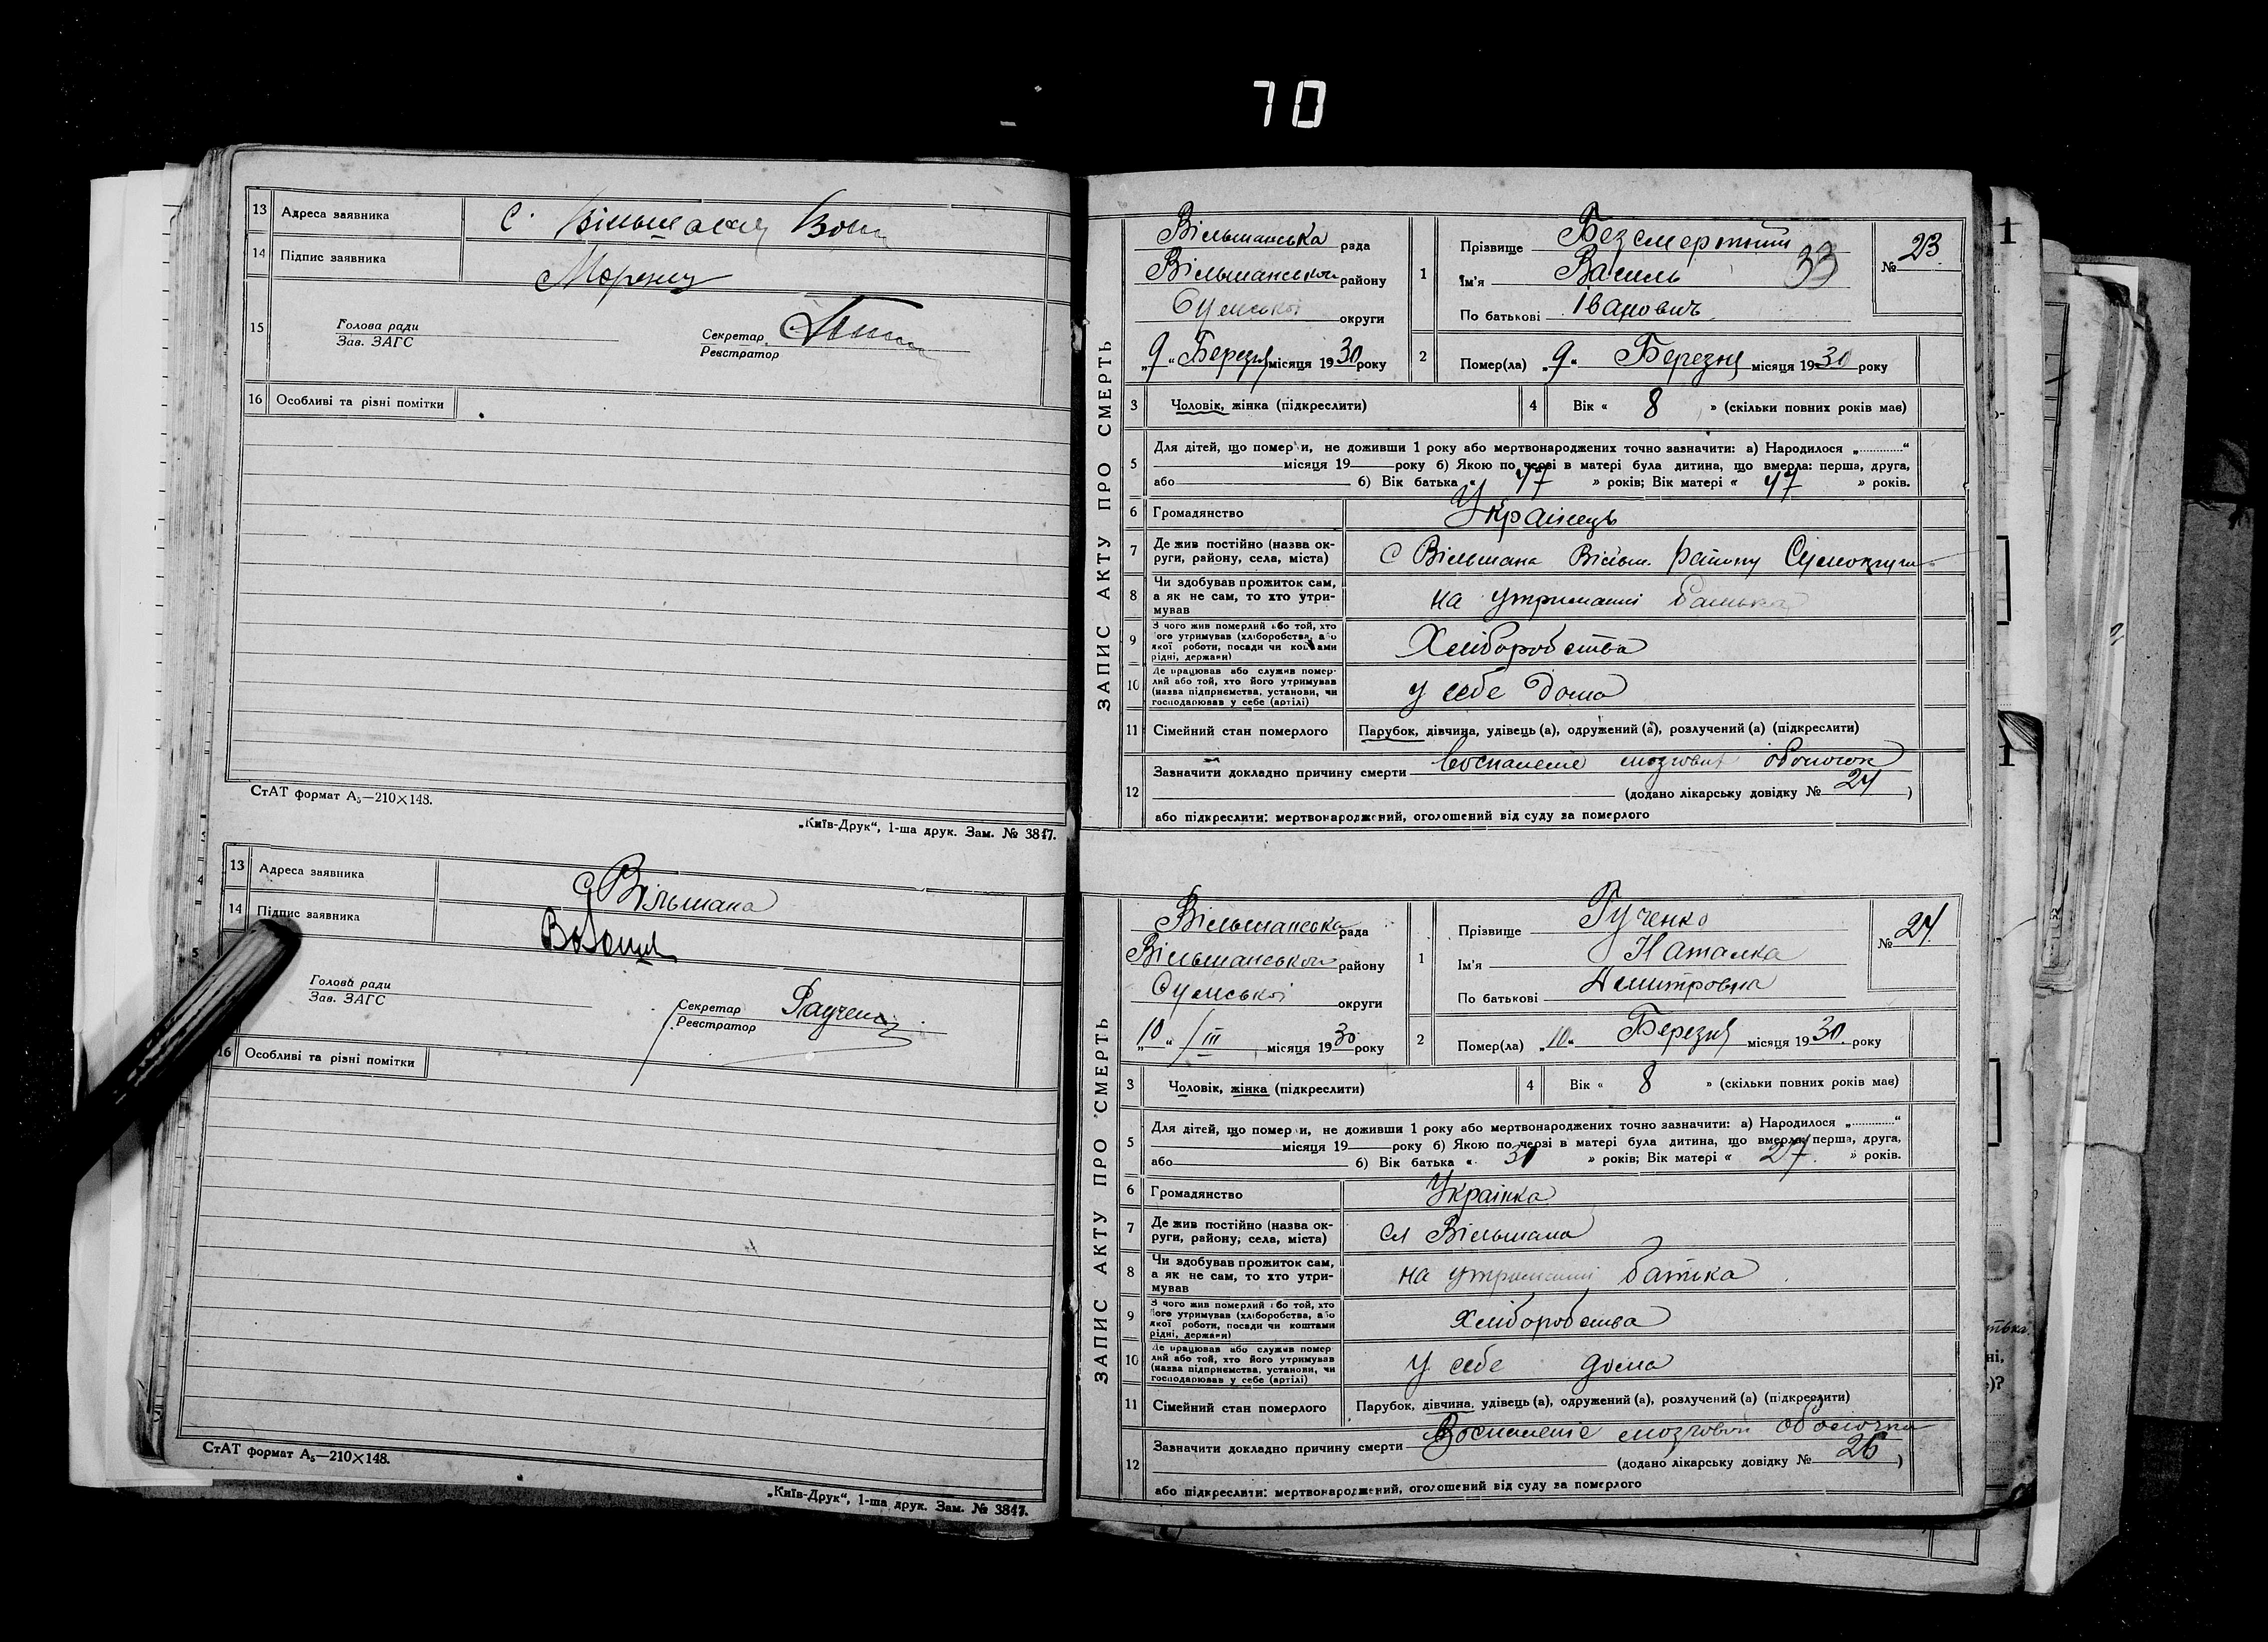 70
13 Адреса заявника с. Вільшана
14 Підпис заявника
15 Голова ради
Зав. ЗАГС
Секретар
Реєстратор
16 Особливі та різні помітки
СтАТ формат А₅—210×148.
„Київ-Друк“, 1-ша друк. Зам. № 3847.
13 Адреса заявника с Вільшана
14 Підпис заявника
Голова ради
Зав. ЗАГС
Секретар
Реєстратор
16 Особливі та різні помітки
СтАТ формат А₅—210×148.
„Київ-Друк“, 1-ша друк. Зам. № 3847.
ЗАПИС АКТУ ПРО СМЕРТЬ
Вільшанська рада
Вільшанської району
Сумської округи
„9“ Березня місяця 1930 року
1 Прізвище Безсмертний
Ім'я Василь 33
По батькові Іванович
№ 23
2 Помер(ла) „9“ Березня місяця 1930 року
3 Чоловік, жінка (підкреслити)
4 Вік « 8 » (скільки повних років має)
5 Для дітей, що померли, не доживши 1 року або мертвонароджених точно зазначити: а) Народилося „..........“
місяця 19 року б) Якою по черзі в матері була дитина, що вмерла: перша, друга,
або б) Вік батька « 47 » років; Вік матері « 47 » років.
6 Громадянство Українець
7 Де жив постійно (назва округи, району, села, міста) с Вільшана Вільш. району Сумокруги
8 Чи здобував прожиток сам, а як не сам, то хто утримував на утриманні батька
9 З чого жив померлий або той, хто його утримував (хліборобства, або якої роботи, посади чи коштами рідні, держави) Хліборобства
10 Де працював або служив померлий або той, хто його утримував (назва підприємства, установи, чи господарював у себе (артілі) у себе дома
11 Сімейний стан померлого Парубок, дівчина, удівець (а), одружений (а), розлучений (а) (підкреслити)
12 Зазначити докладно причину смерти Воспаление мозговых оболочок
(додано лікарську довідку № 24)
або підкреслити: мертвонароджений, оголошений від суду за померлого
ЗАПИС АКТУ ПРО СМЕРТЬ
Вільшанська рада
Вільшанської району
Сумської округи
„10“ III місяця 1930 року
1 Прізвище Рученко
Ім'я Наталка
По батькові Дмитровна
№ 24
2 Помер(ла) „10“ Березня місяця 1930 року
3 Чоловік, жінка (підкреслити)
4 Вік « 8 » (скільки повних років має)
5 Для дітей, що померли, не доживши 1 року або мертвонароджених точно зазначити: а) Народилося „..........“
місяця 19 року б) Якою по черзі в матері була дитина, що вмерла: перша, друга,
або б) Вік батька « 31 » років; Вік матері « 27 » років.
6 Громадянство Українка
7 Де жив постійно (назва округи, району, села, міста) сл Вільшана
8 Чи здобував прожиток сам, а як не сам, то хто утримував на утриманні батька
9 З чого жив померлий або той, хто його утримував (хліборобства, або якої роботи, посади чи коштами рідні, держави) Хліборобства
10 Де працював або служив померлий або той, хто його утримував (назва підприємства, установи, чи господарював у себе (артілі) у себе дома
11 Сімейний стан померлого Парубок, дівчина, удівець (а), одружений (а), розлучений (а) (підкреслити)
12 Зазначити докладно причину смерти Воспаление мозговой оболочки
(додано лікарську довідку № 26)
або підкреслити: мертвонароджений, оголошений від суду за померлого